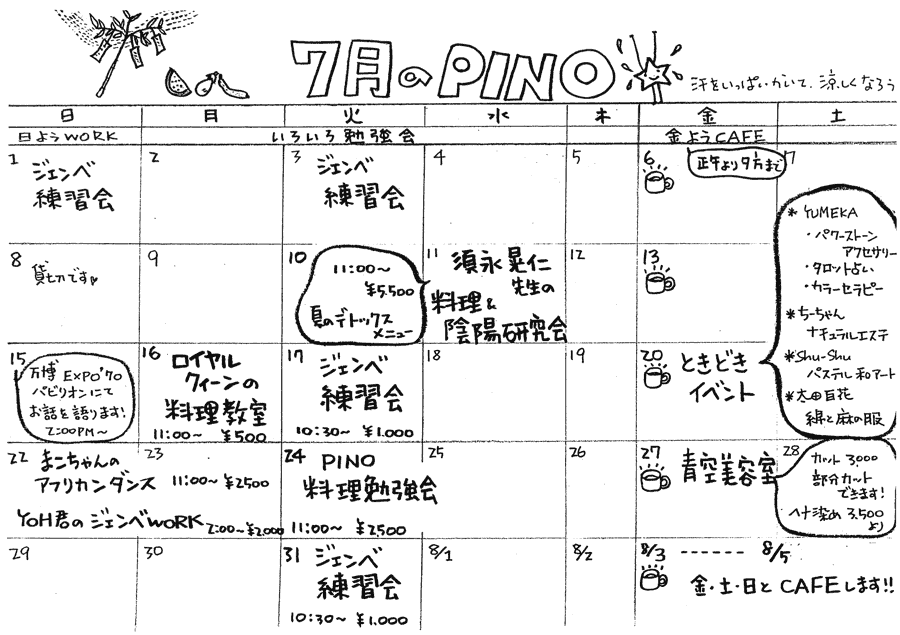 7月のPINO
汗をいっぱいかいて、涼しくなろう
日 月 火 水 木 金 土
日ようWORK いろいろ勉強会 金ようCAFE
1
ジェンベ
練習会
2
3
ジェンベ
練習会
4
5
6
正午より夕方まで
7
8
貸切です
9
10
11:00〜
¥5.500
夏のデトックス
メニュー
11
須永晃仁
先生の
料理&
陰陽研究会
12
13
＊YUMEKA
・パワーストーン
アクセサリー
・タロット占い
・カラーセラピー
＊ちーちゃん
ナチュラルエステ
＊Shu-Shu
パステル和アート
＊太田百花
綿と麻の服
15
万博EXPO'70
パビリオンにて
お話を語ります!
2:00PM〜
16
ロイヤル
クィーンの
料理教室
11:00〜 ¥500
17
ジェンベ
練習会
10:30〜 ¥1.000
18
19
20
ときどき
イベント
22
まこちゃんの
アフリカンダンス 11:00〜¥2500
YOH君のジェンベWORK 2:00〜¥2.000
23
24
PINO
料理勉強会
11:00〜 ¥2,500
25
26
27
青空美容室
28
カット 3,000
部分カット
できます!
ヘナ染め 3.500
より
29
30
31
ジェンベ
練習会
10:30〜 ¥1.000
8/1
8/2
8/3 ------ 8/5
金・土・日とCAFEします!!